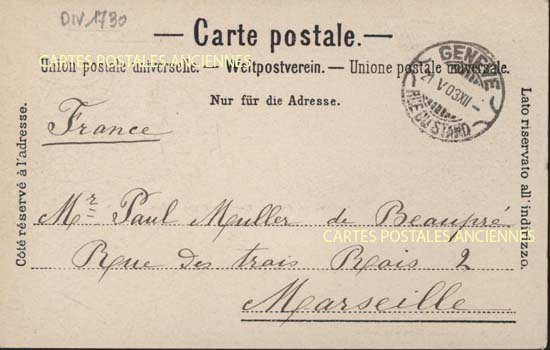 DIV 1730
— Carte postale. —
CARTES POSTALES ANCIENNES
Union postale universelle. — Weltpostverein. — Unione postale universale.
Nur für die Adresse.
GENÈVE
21 V 03 XII –
RUE DU STAND
France
Côté réservé à l'adresse.
Lato riservato all' indirizzo.
Mr Paul Muller de Beaupré
CARTES POSTALES ANCIENNES
Rue des trois Rois 2
Marseille